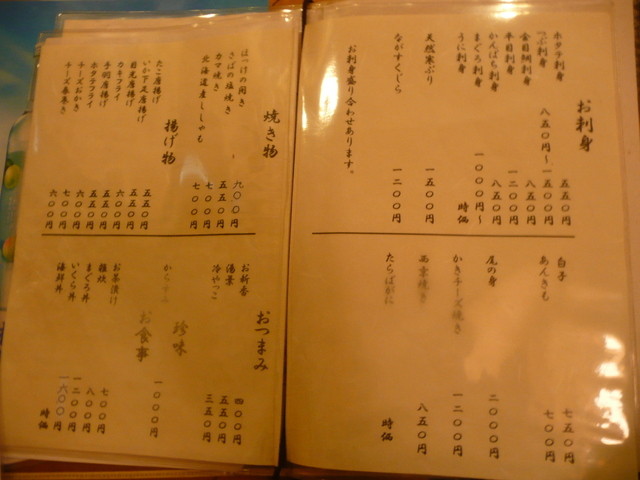 お刺身
ホタテ刺身 五五〇円
つぶ刺身 八五〇円〜一五〇〇円
金目鯛刺身 八五〇円
平目刺身 一二〇〇円
かんぱち刺身 八五〇円
まぐろ刺身 一〇〇〇円〜
うに刺身 時価
天然寒ぶり 一五〇〇円
ながすくじら 一二〇〇円
お刺身盛り合わせあります。
白子 七五〇円
あんきも 七〇〇円
尾の身 二〇〇〇円
かきチーズ焼き 一二〇〇円
西京焼き 八五〇円
たらばがに 時価
焼き物
ほっけの開き 九〇〇円
さばの塩焼き 五五〇円
カマ焼き 七〇〇円
北海道産ししゃも 七〇〇円
揚げ物
たこ唐揚げ 五五〇円
いか下足唐揚げ 五五〇円
目光唐揚げ 六〇〇円
カキフライ 五五〇円
手羽唐揚げ 五五〇円
ホタテフライ 六〇〇円
チーズおかき 七〇〇円
チーズ春巻き 六〇〇円
おつまみ
お新香 四〇〇円
湯葉 五五〇円
冷やっこ 三五〇円
珍味
からすみ 一〇〇〇円
お食事
お茶漬け 七〇〇円
雑炊 八〇〇円
まぐろ丼 一二〇〇円
いくら丼 一六〇〇円
海鮮丼 時価